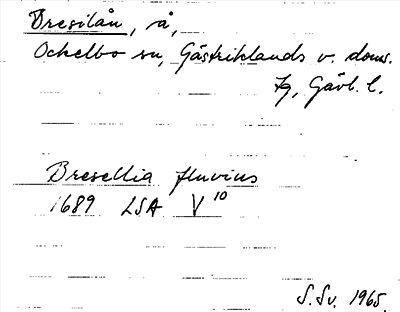 Bresilån, å,
Ockelbo sn, Gästriklands v. doms.
tg, Gävl. l.
Bresellia fluvius
1689 LSA V 10
S. Sv. 1965.